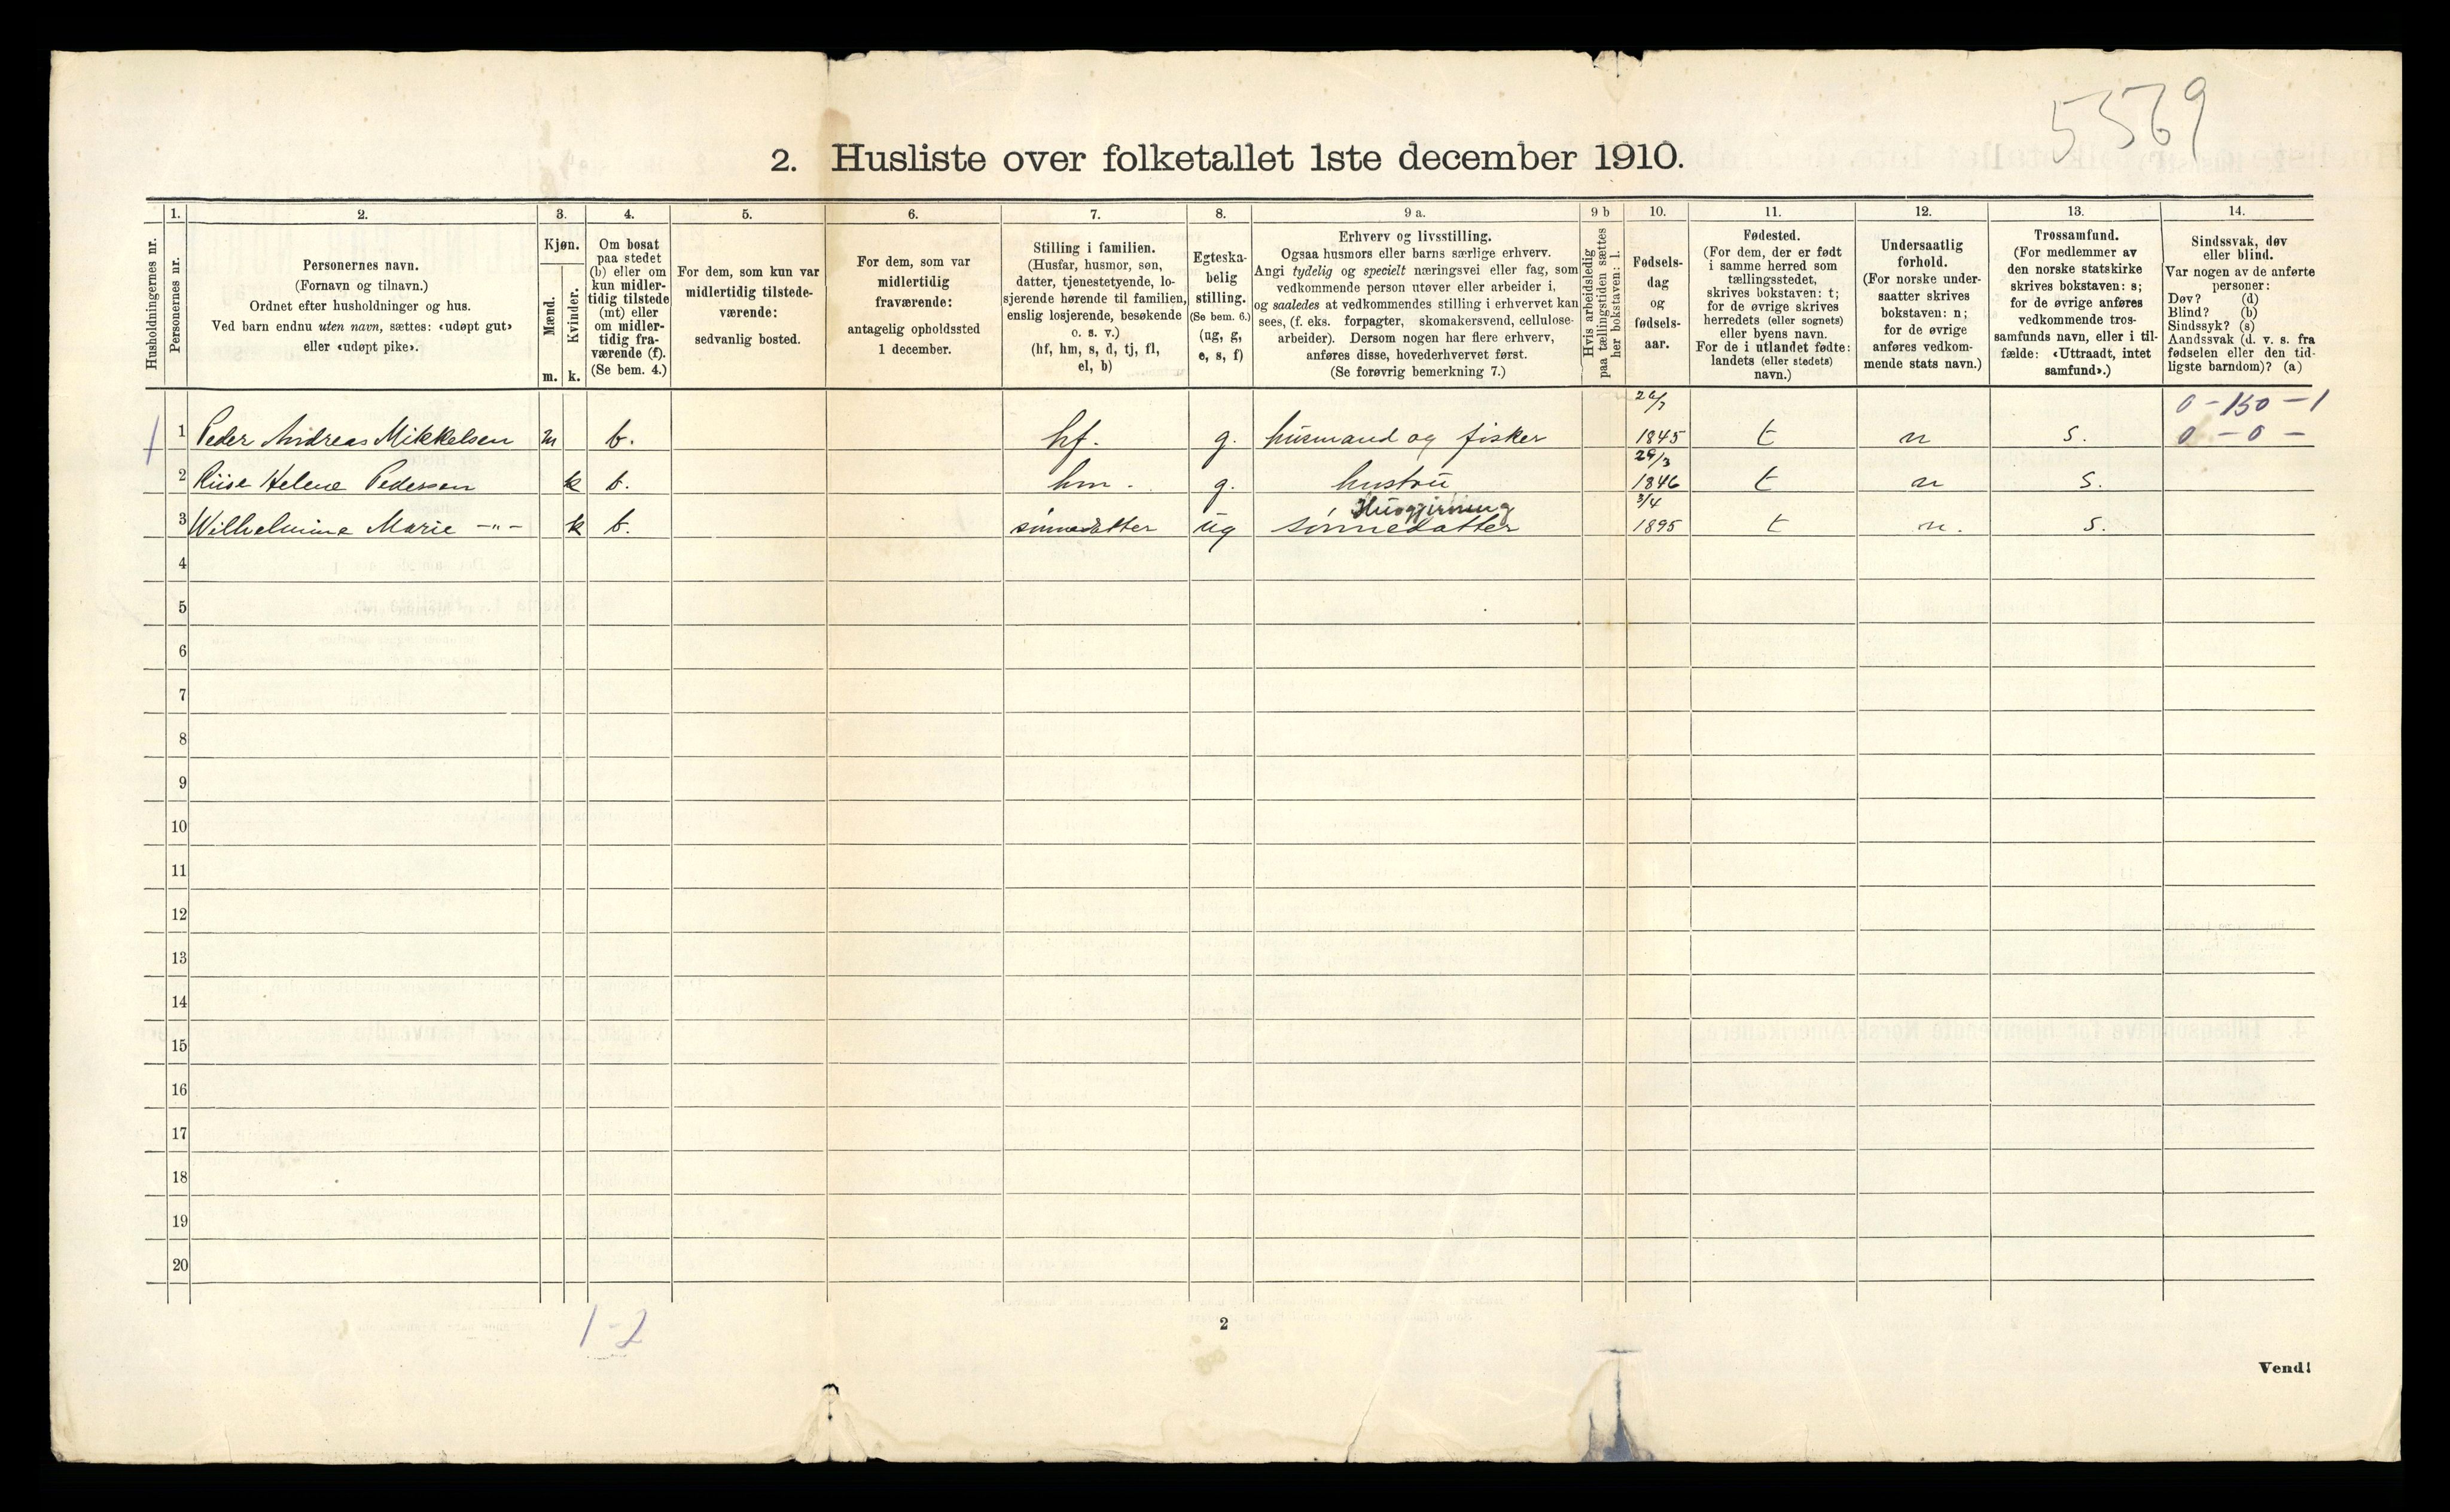 5569
2. Husliste over folketallet 1ste december 1910.
Husholdningernes nr.
1. Personernes nr.
2. Personernes navn.
(Fornavn og tilnavn.)
Ordnet efter husholdninger og hus.
Ved barn endnu uten navn, sættes: «udøpt gut»
eller «udøpt pike».
3. Kjøn.
Mænd. m.
Kvinder. k.
4. Om bosat
paa stedet
(b) eller om
kun midler-
tidig tilstede
(mt) eller
om midler-
tidig fra-
værende (f).
(Se bem. 4.)
5. For dem, som kun var
midlertidig tilstede-
værende:
sedvanlig bosted.
6. For dem, som var
midlertidig
fraværende:
antagelig opholdssted
1 december.
7. Stilling i familien.
(Husfar, husmor, søn,
datter, tjenestetyende, lo-
sjerende hørende til familien,
enslig losjerende, besøkende
o. s. v.)
(hf, hm, s, d, tj, fl,
el, b)
8. Egteska-
belig
stilling.
(Se bem. 6.)
(ug, g,
e, s, f)
9 a. Erhverv og livsstilling.
Ogsaa husmors eller barns særlige erhverv.
Angi tydelig og specielt næringsvei eller fag, som
vedkommende person utøver eller arbeider i,
og saaledes at vedkommendes stilling i erhvervet kan
sees, (f. eks. forpagter, skomakersvend, cellulose-
arbeider). Dersom nogen har flere erhverv,
anføres disse, hovederhvervet først.
(Se forøvrig bemerkning 7.)
9 b Hvis arbeidsledig
paa tællingstiden sættes
her bokstaven: l.
10. Fødsels-
dag
og
fødsels-
aar.
11. Fødested.
(For dem, der er født
i samme herred som
tællingsstedet,
skrives bokstaven: t;
for de øvrige skrives
herredets (eller sognets)
eller byens navn.
For de i utlandet fødte:
landets (eller stedets)
navn.)
12. Undersaatlig
forhold.
(For norske under-
saatter skrives
bokstaven: n;
for de øvrige
anføres vedkom-
mende stats navn.)
13. Trossamfund.
(For medlemmer av
den norske statskirke
skrives bokstaven: s;
for de øvrige anføres
vedkommende tros-
samfunds navn, eller i til-
fælde: «Uttraadt, intet
samfund».)
14. Sindssvak, døv
eller blind.
Var nogen av de anførte
personer:
Døv? (d)
Blind? (b)
Sindssyk? (s)
Aandssvak (d. v. s. fra
fødselen eller den tid-
ligste barndom)? (a)
0 - 150 - 1
1 1 Peder Andreas Mikkelsen m b. hf. g. husmand og fisker 1845 t n s. 0 - 0 -
29/3
2 Helene Pedersen k b. hm. g. hustru 1846 t n s.
Husgjerning 3/4
3 Wilhelmine Marie -"- k b. sønnedatter ug sønnedatter 1895 t n. s.
4
5
6
7
8
9
10
11
12
13
14
15
16
17
18
19
20
1-2
2
Vend!